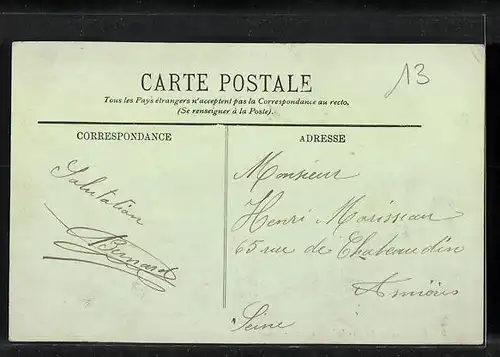 13
CARTE POSTALE
Tous les Pays étrangers n'acceptent pas la Correspondance au recto.
(Se renseigner à la Poste).
CORRESPONDANCE
ADRESSE
Salutation
Bernard
Monsieur
Henri Morisseau
65 rue de Chateaudin
Asnières
Seine